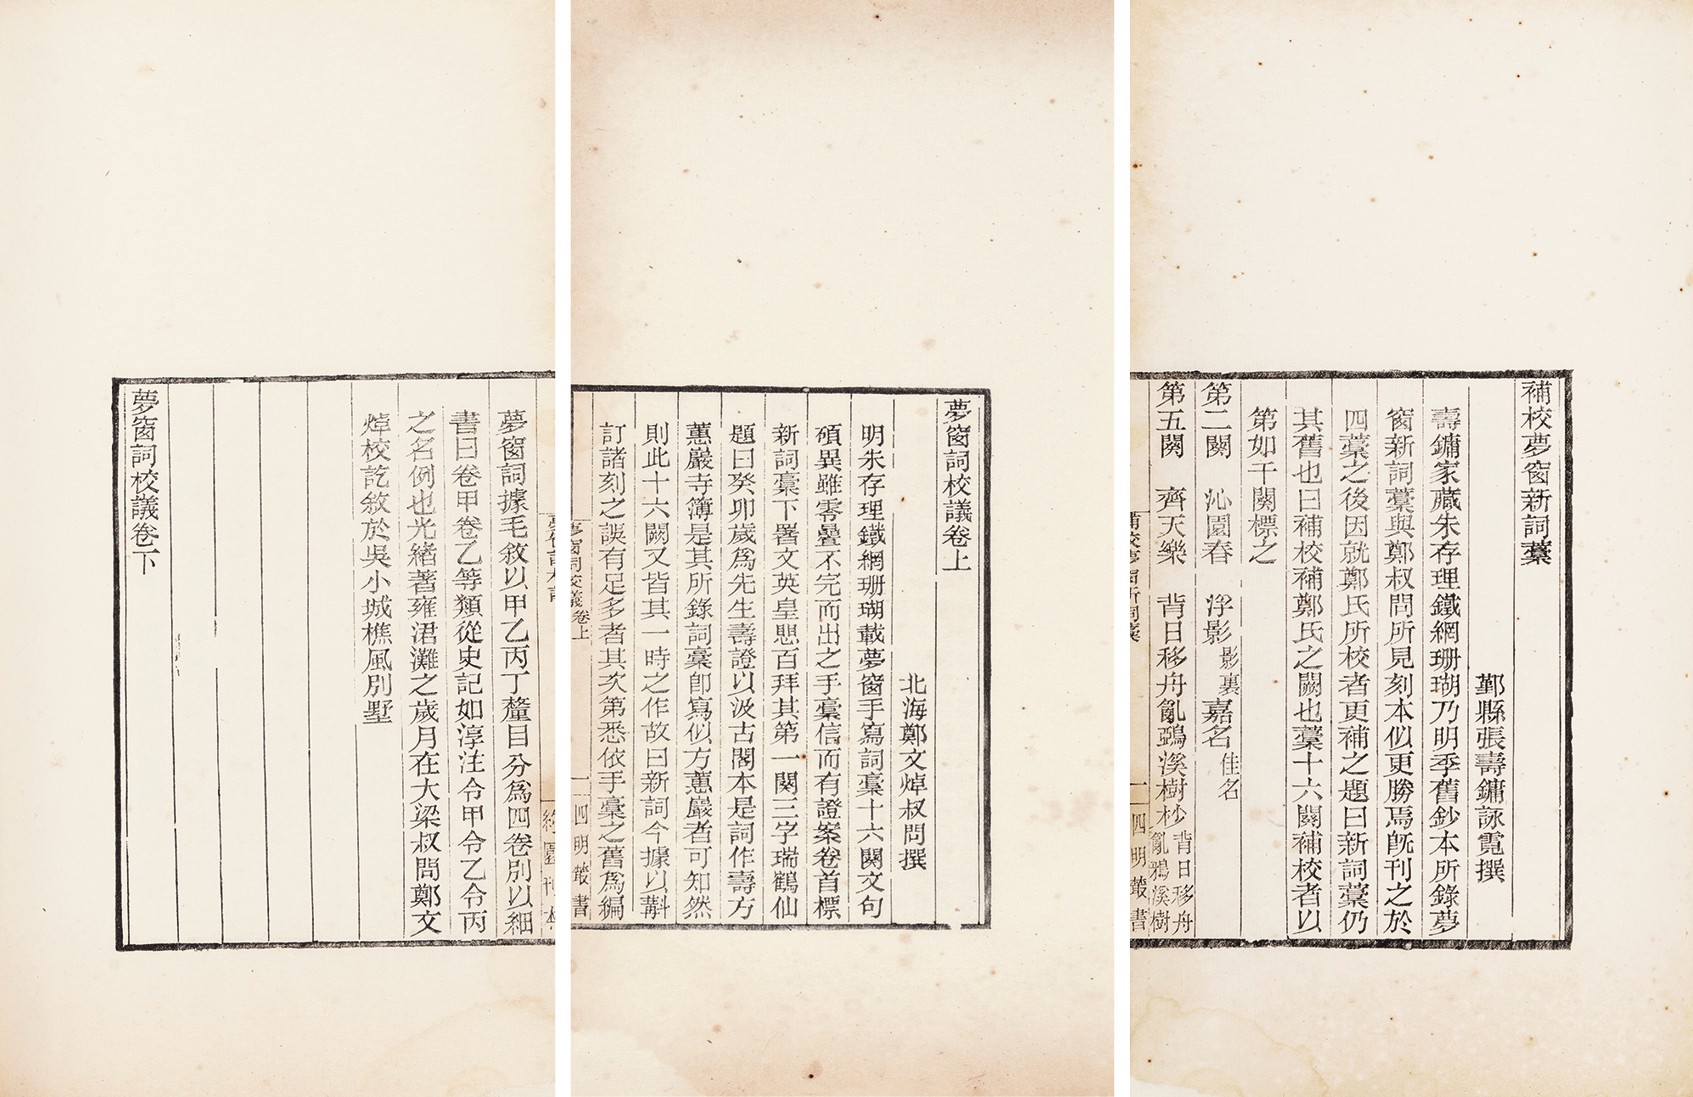 補校夢窗新詞藁
鄞縣張壽鏞詠霓撰
壽鏞家藏朱存理鐵網珊瑚乃明季舊鈔本所錄夢
窗新詞藁與鄭叔問所見刻本似更勝焉旣刊之於
四藁之後因就鄭氏所校者更補之題曰新詞藁仍
其舊也曰補校補鄭氏之闕也藁十六闋補校者以
第如干闋標之
第二闋 沁園春 浮影影裏嘉名佳名
第五闋 齊天樂 背日移舟亂鵶溪樹杪背日移舟亂鴉溪樹
補校夢窗新詞藁
一 四明叢書
夢窗詞校議卷上
北海鄭文焯叔問撰
明朱存理鐵網珊瑚載夢窗手寫詞藁十六闋文句
碩異雖零疊不完而出之手藁信而有證案卷首標
新詞藁下署文英皇懇百拜其第一闋三字瑞鶴仙
題曰癸卯歲爲先生壽證以汲古閣本是詞作壽方
蕙巖寺簿是其所錄詞藁卽寫似方蕙巖者可知然
則此十六闋又皆其一時之作故曰新詞今據以斠
訂諸刻之誤有足多者其次第悉依手藁之舊爲編
夢窗詞校議卷上
一 四明叢書
約園刊本
夢窗詞據毛敘以甲乙丙丁釐目分爲四卷別以細
書曰卷甲卷乙等類從史記如淳注令甲令乙令丙
之名例也光緖著雍涒灘之歲月在大梁叔問鄭文
焯校訖敘於吳小城樵風別墅
夢窗詞校議卷下